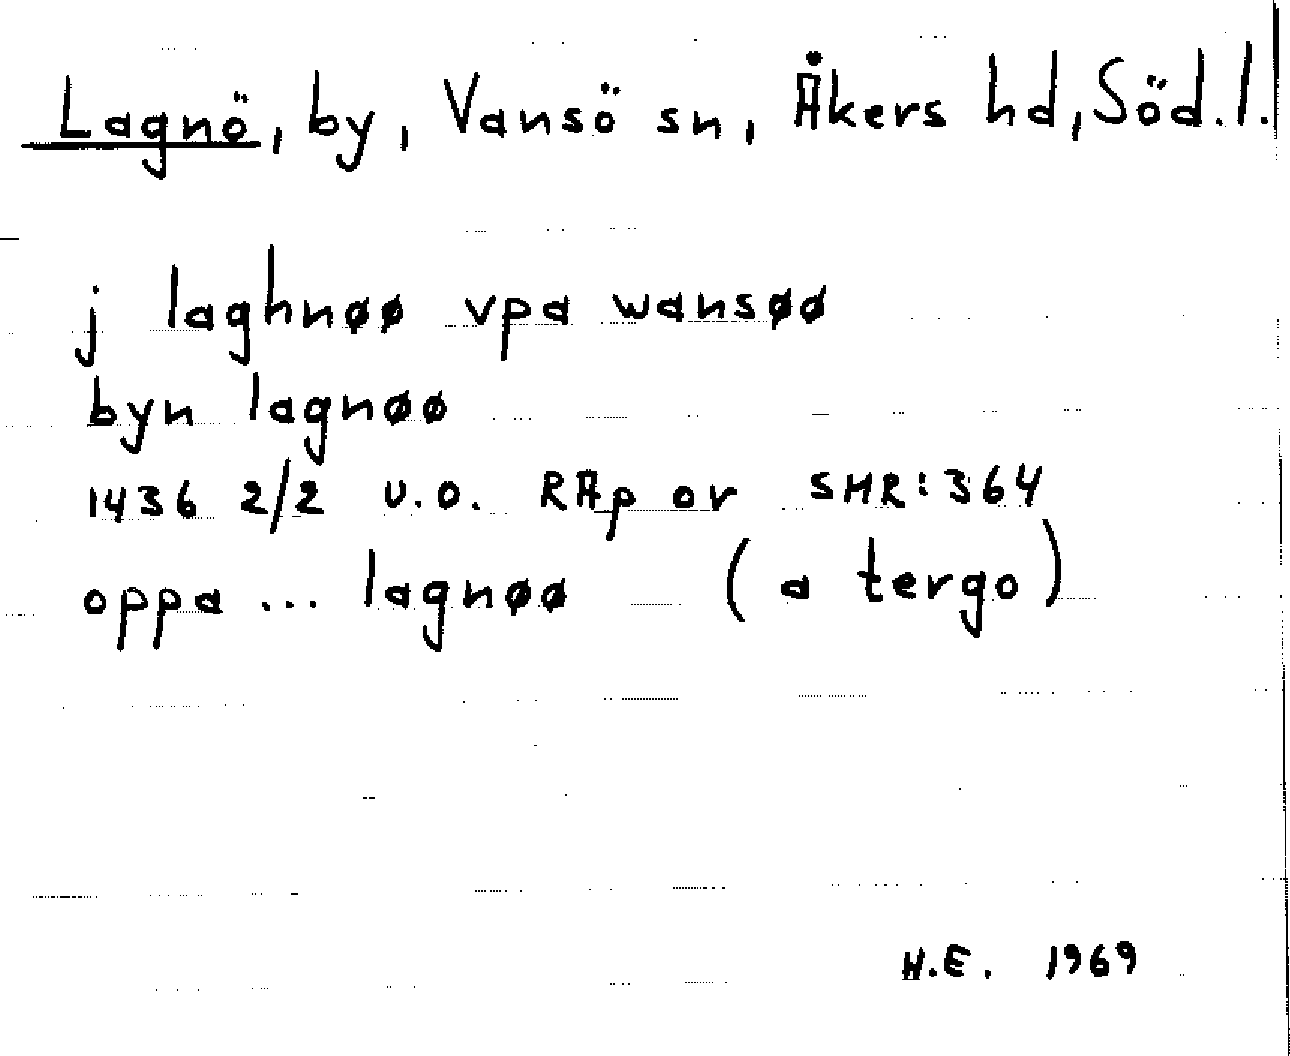 Lagnö, by, Vansö sn, Åkers hd, Söd. l.
j laghnøø vpa wansøø
byn lagnøø
1436 2/2 u.o. RAp or SMR:364
oppa ... lagnøø (a tergo)
H.E. 1969